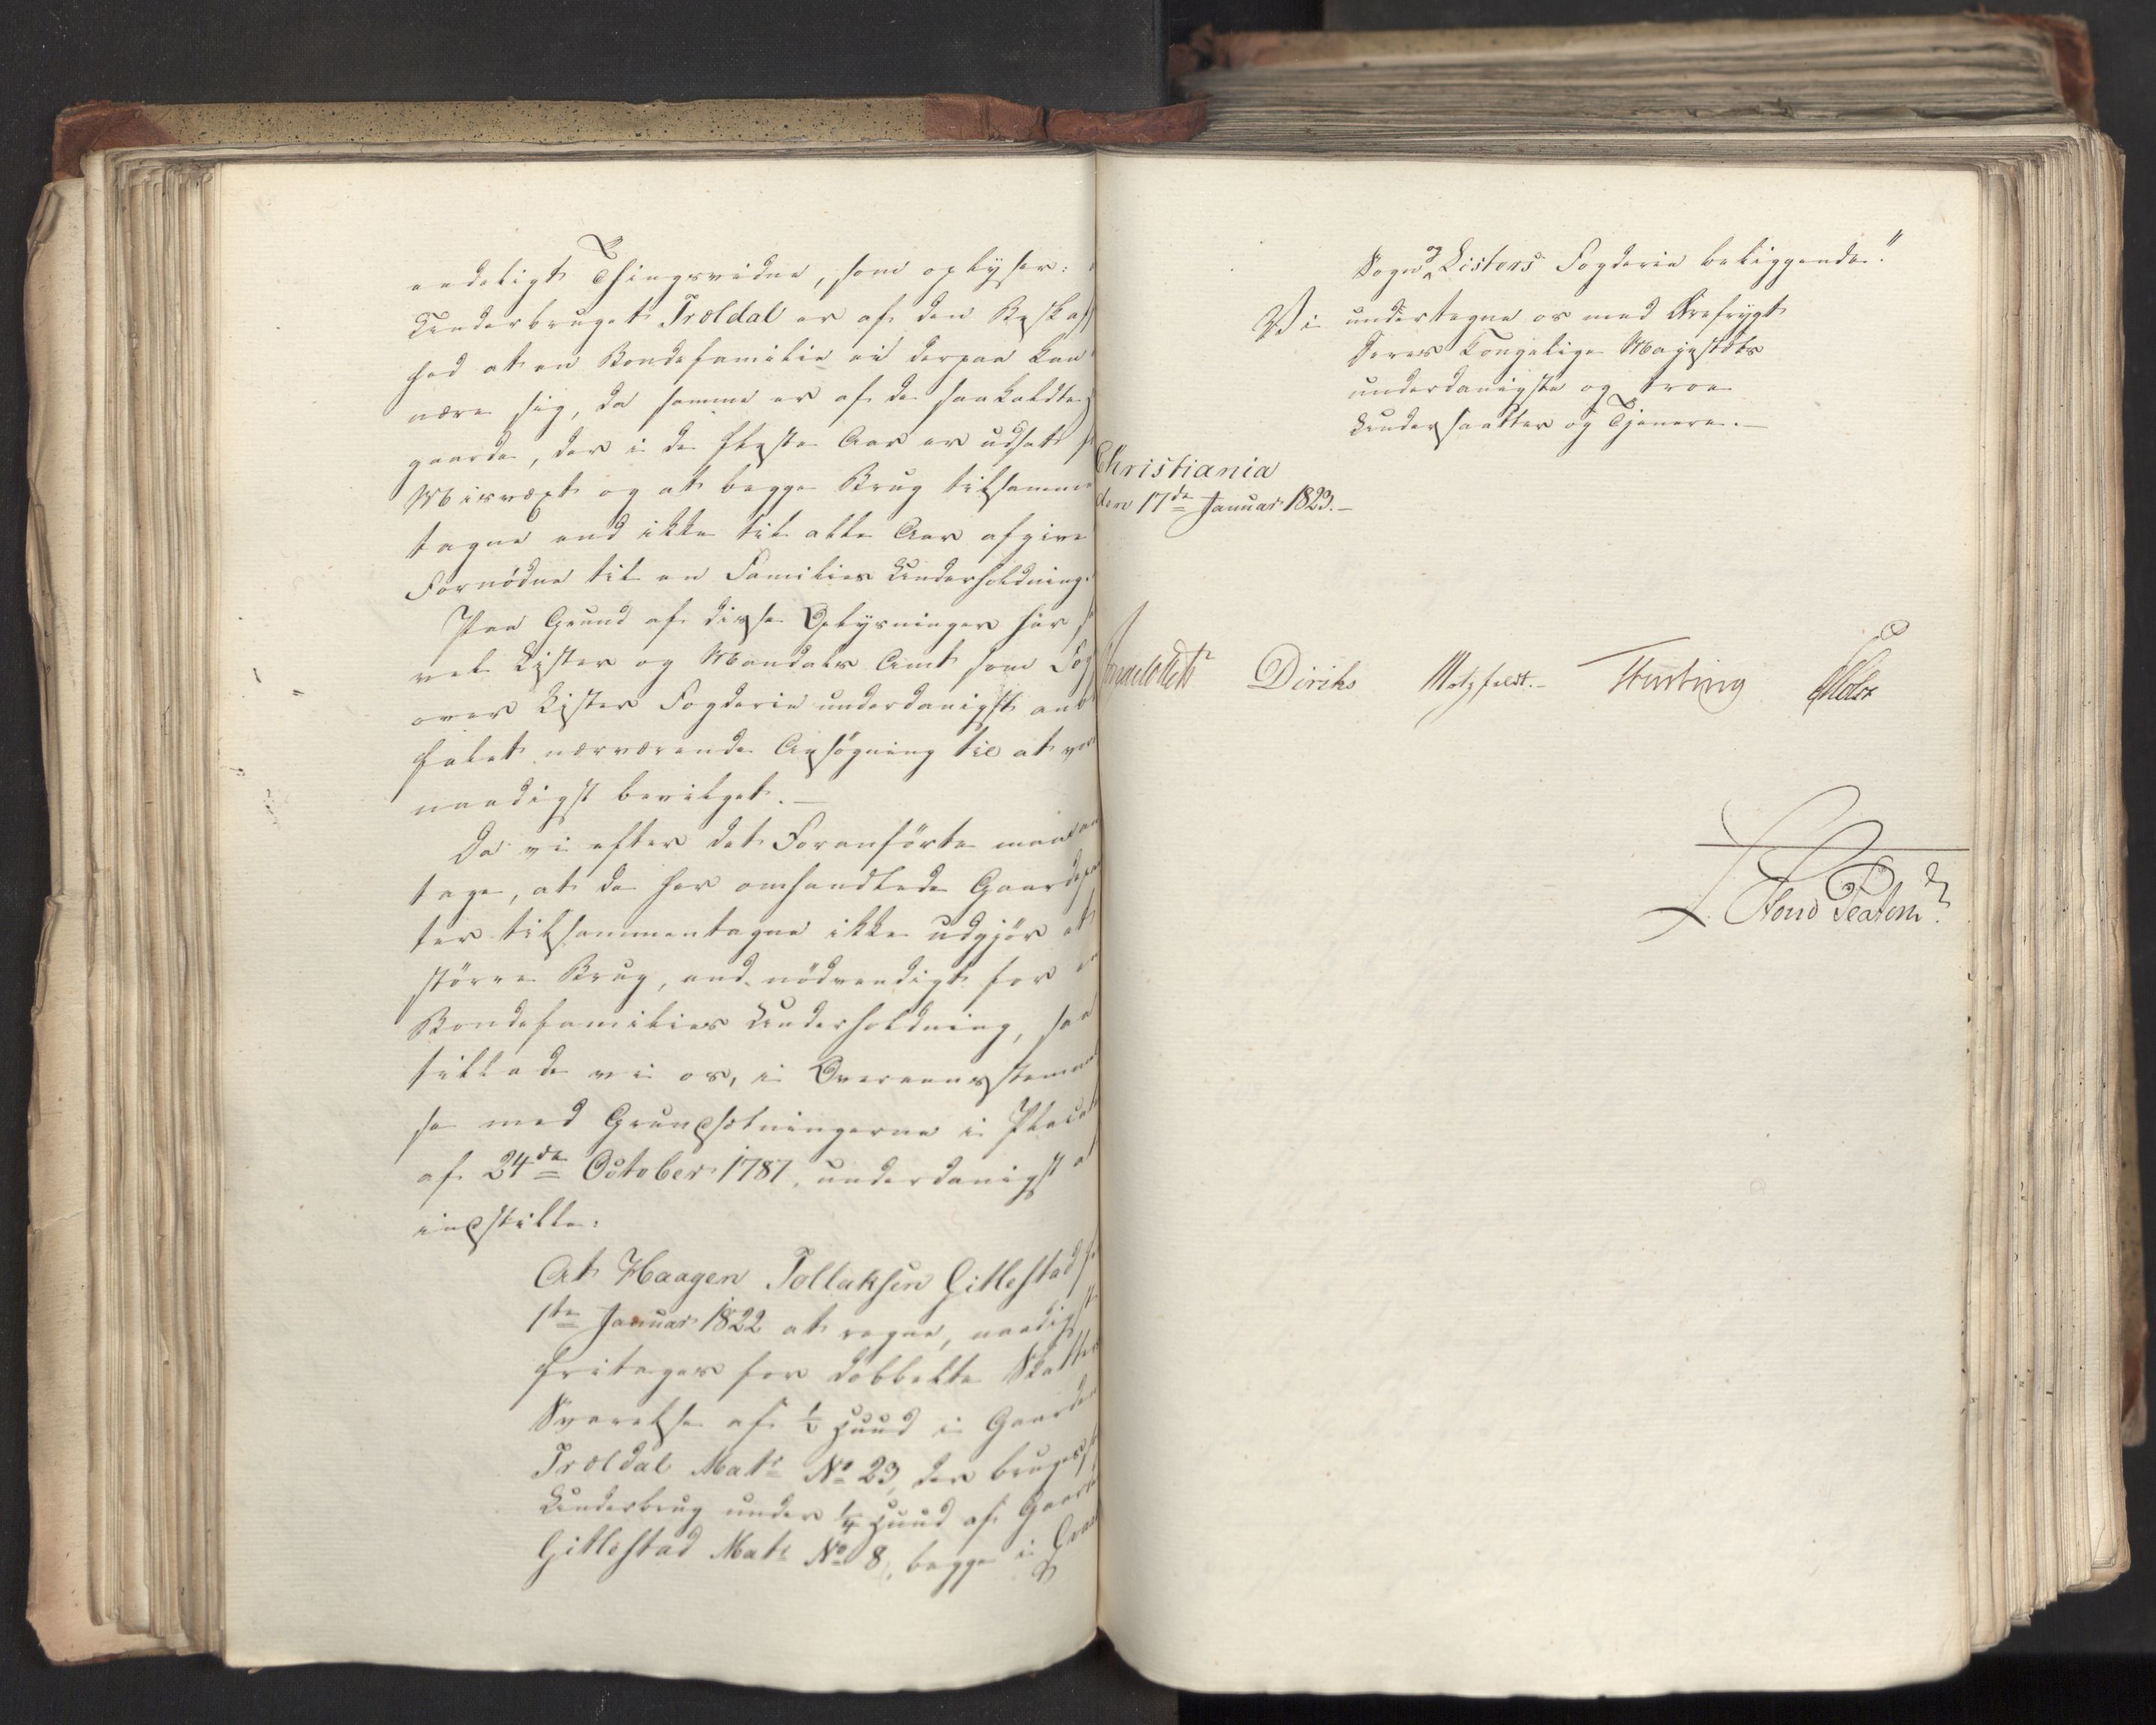 endeligt Thingsvidne, som oplyser:
Underbruget Troldal er af den Beskaf
hed at en Bondefamilie ei derpaa kan
nære sig, da samme er af de saakaldte
gaarde, der i de fleste Aar er udsat
Misvæxt og at begge Brug tilsammen
tagne end ikke til alle Aar afgive
Fornödne til en Families Underholdning.
Paa Grund af disse Oplysninger har
vel Lister og Mandals Amt som Fog
over Lister Fogderie underdanigst anb
falet nærværende Ansögning til at vor
naadigst bevilget.—
Da vi efter det Foranförte maa an
tage, at de her omhandlede Gaardepar
ter tilsammentagne ikke udgjör et
större Brug, end nödvendigt for en
Bondefamilies Underholdning, saa
tillade vi os, i Overeensstemmel
se med Grundsætningerne i Placat
af 24de October 1787, underdanigst at
indstille:
At Haagen Tollaksen Gitlestad fr
1ste Januar 1822 at regne, naadigst
fritages for dobbelte Skatters
Svarelse af ½ Huud i Gaarden
Troldal Matr No 23, der bruges s
Underbrug under ¼ Huud af Gaard
Gitlestad Matr No 8, begge i
Sogn og Listers Fogderie beliggende."
Vi undertegne os med Ærefrygt
Deres Kongelige Majestæts
underdanigste og troe
Undersaatter og Tjenere.—
Christiania
den 17de Januar 1823.—
Diriks Motzfeldt.— Holst